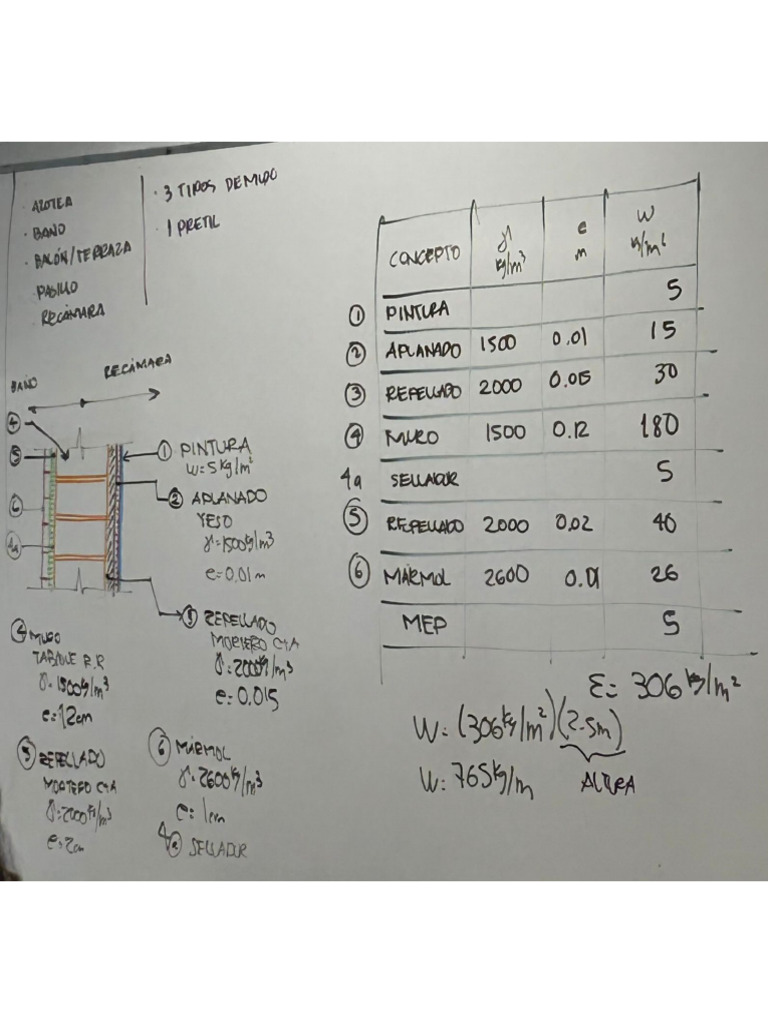 · AZOTEA
· BAÑO
· BALCÓN/TERRAZA
PASILLO
· RECÁMARA
· 3 TIPOS DE MURO
· 1 PRETIL
BAÑO RECÁMARA
4
5
6
4a
① PINTURA
W=5 kg/m²
② APLANADO
YESO
γ=1500kg/m³
e=0.01m
③ REPELLADO
MORTERO C-A
γ=2000kg/m³
e=0.015
④ MURO
TABIQUE R.R
γ=1500kg/m³
e=12cm
⑤ REPELLADO
MORTERO C-A
γ=2000kg/m³
e=2cm
⑥ MÁRMOL
γ=2600kg/m³
e=1cm
4a SELLADOR
CONCEPTO γ kg/m³ e m W kg/m²
① PINTURA 5
② APLANADO 1500 0.01 15
③ REPELLADO 2000 0.015 30
④ MURO 1500 0.12 180
4a SELLADOR 5
⑤ REPELLADO 2000 0.02 40
⑥ MÁRMOL 2600 0.01 26
MEP 5
Σ= 306 kg/m²
W= (306 kg/m²)(2.5m)
W= 765 kg/m ALTURA